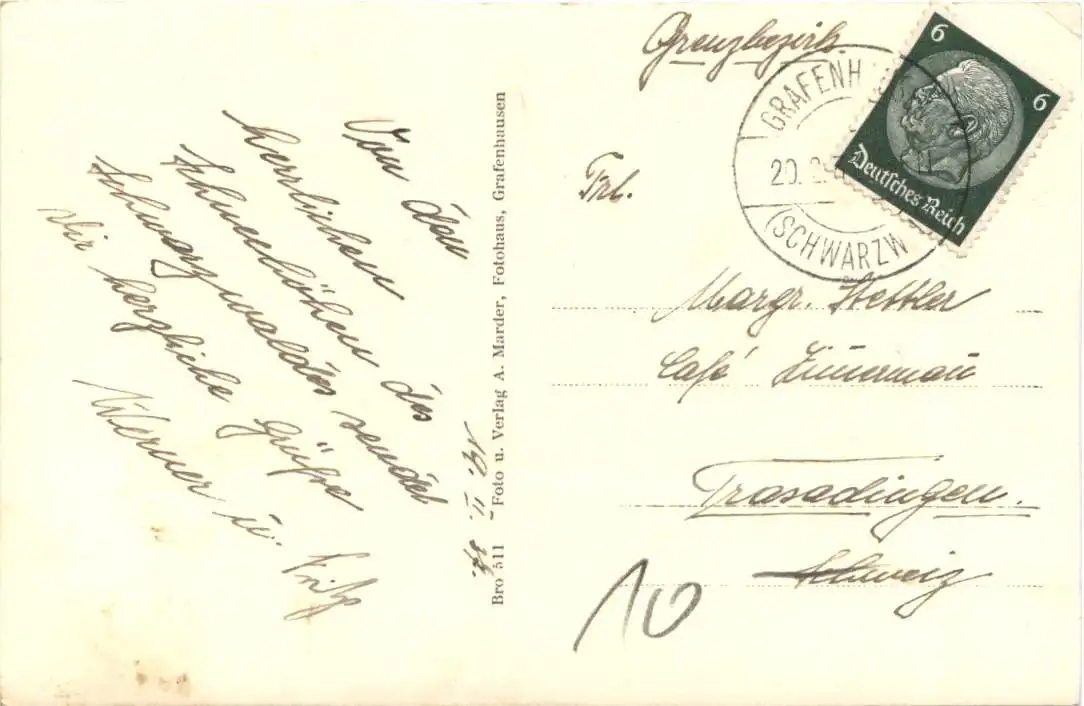 Von den
herrlichen
Schneehöhen des
Schwarzwaldes sendet
Dir herzliche Grüße
Werner u. Fritz
Bro 511 Foto u. Verlag A. Marder, Fotohaus, Grafenhausen
Grenzbezirk
GRAFENH
20.
(SCHWARZW
6
6
Deutsches Reich
Frl.
Margr. Stettler
Café Zimmermann
Trasadingen.
Schweiz
10